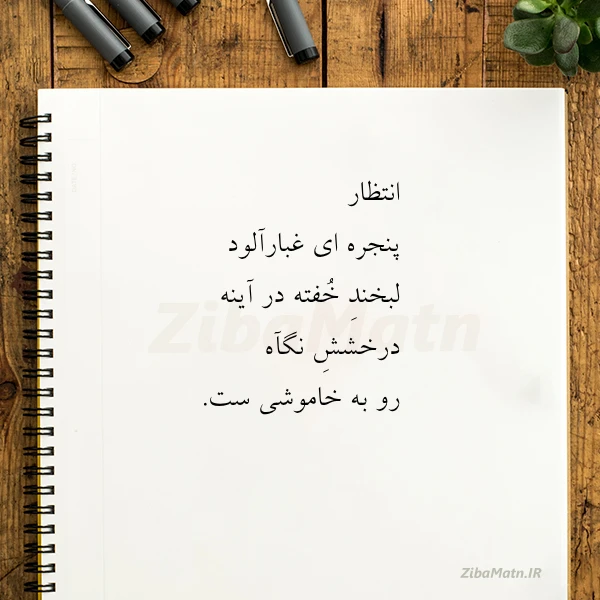 انتظار
پنجره ای غبارآلود
لبخندِ خُفته در آینه
درخششِ نگآه
رو به خاموشی ست.
ZibaMatn
ZibaMatn.IR